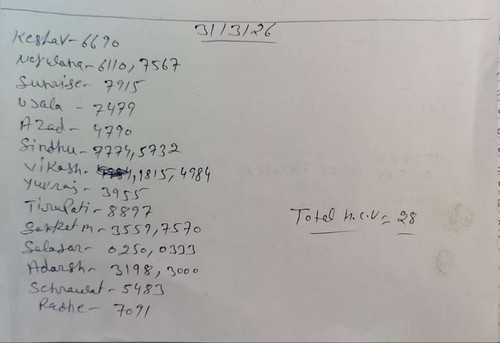 31/3/26
Keshav - 6690
- 6110, 7567
Sunrise - 7915
- 7479
Azad - 4790
Sindhu - 7774, 5732
Vikash. , 1815, 4984
Yuvraj - 3955
Tirupati - 8897
- 3559, 7570
Salasar - 0250, 0333
Adarsh - 3198, 3000
Sehrawat - 5483
- 7091
Total H.C.V = 28